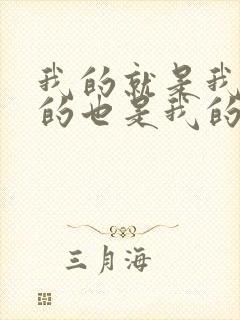 我的就是我
的也是我的
三月海